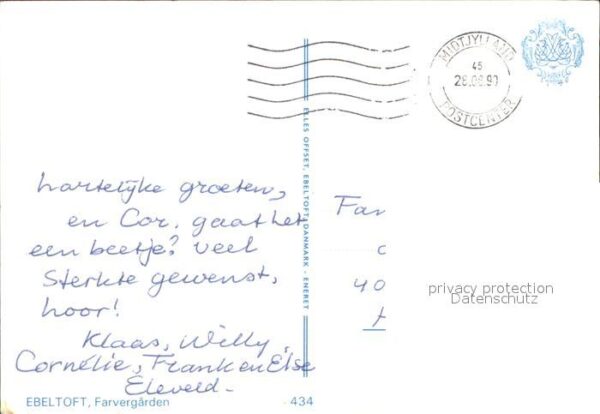 MIDTJYLLAND
45
28.08.90
POSTCENTER
ELLES OFFSET, EBELTOFT, DANMARK - ENERET
hartelijke groeten,
en Cor, gaat het
een beetje? veel
sterkte gewenst,
hoor!
Klaas, Willy,
Cornélie, Frank en Else
Eleveld -
Far
40
privacy protection
Datenschutz
EBELTOFT, Farvergården
434